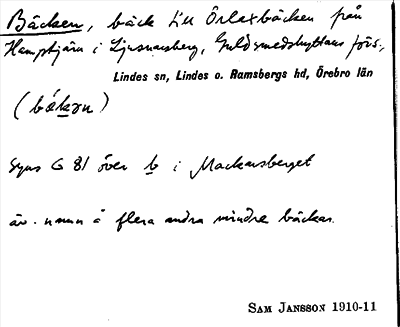 Bäcken, bäck till Örlaxbäcken från
Hemptjärn i Ljusnarsberg, Guldsmedshyttans förs.,
Lindes sn, Lindes o. Ramsbergs hd, Örebro län
(bäkən)
Syns G 81 över b i Mackarsberget
äv. namn å flera andra mindre bäckar.
SAM JANSSON 1910-11